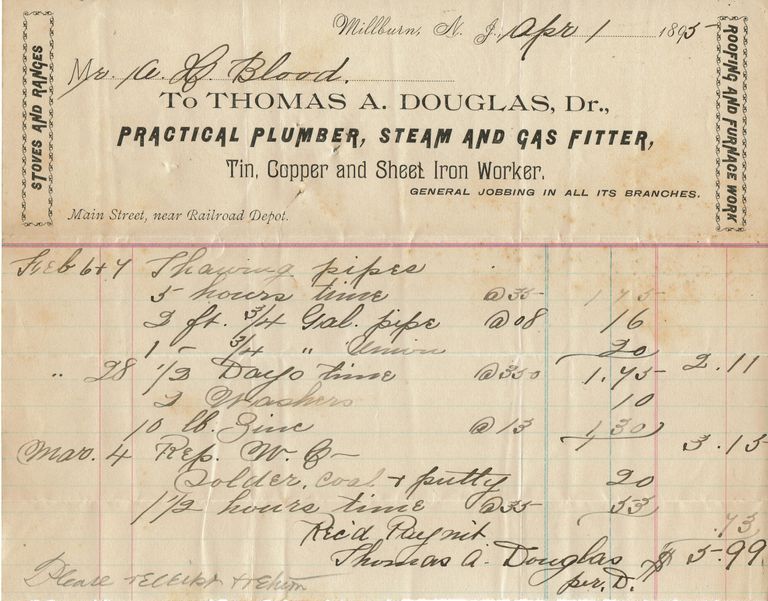 Millburn, N. J., Apr 1 1895
STOVES AND RANGES
ROOFING AND FURNACE WORK
Mr. A. H. Blood.
To THOMAS A. DOUGLAS, Dr.,
PRACTICAL PLUMBER, STEAM AND GAS FITTER,
Tin, Copper and Sheet Iron Worker.
GENERAL JOBBING IN ALL ITS BRANCHES.
Main Street, near Railroad Depot.
Feb 6+7 Thawing pipes
5 hours time @35 1.75
2 ft. 3/4 Gal. pipe @08 16
1 - 3/4 " Union 20 2.11
" 28 1/2 Days time @350 1.75
2 Washers 10
10 lb. Zinc @13 1 30 3.15
Mar. 4 Rep. W. C-
Solder, coal + putty 20
1 1/2 hours time @35 53
.73
Rec'd Paymt
Thomas A. Douglas $5.99
per. D.
Please receipt + return